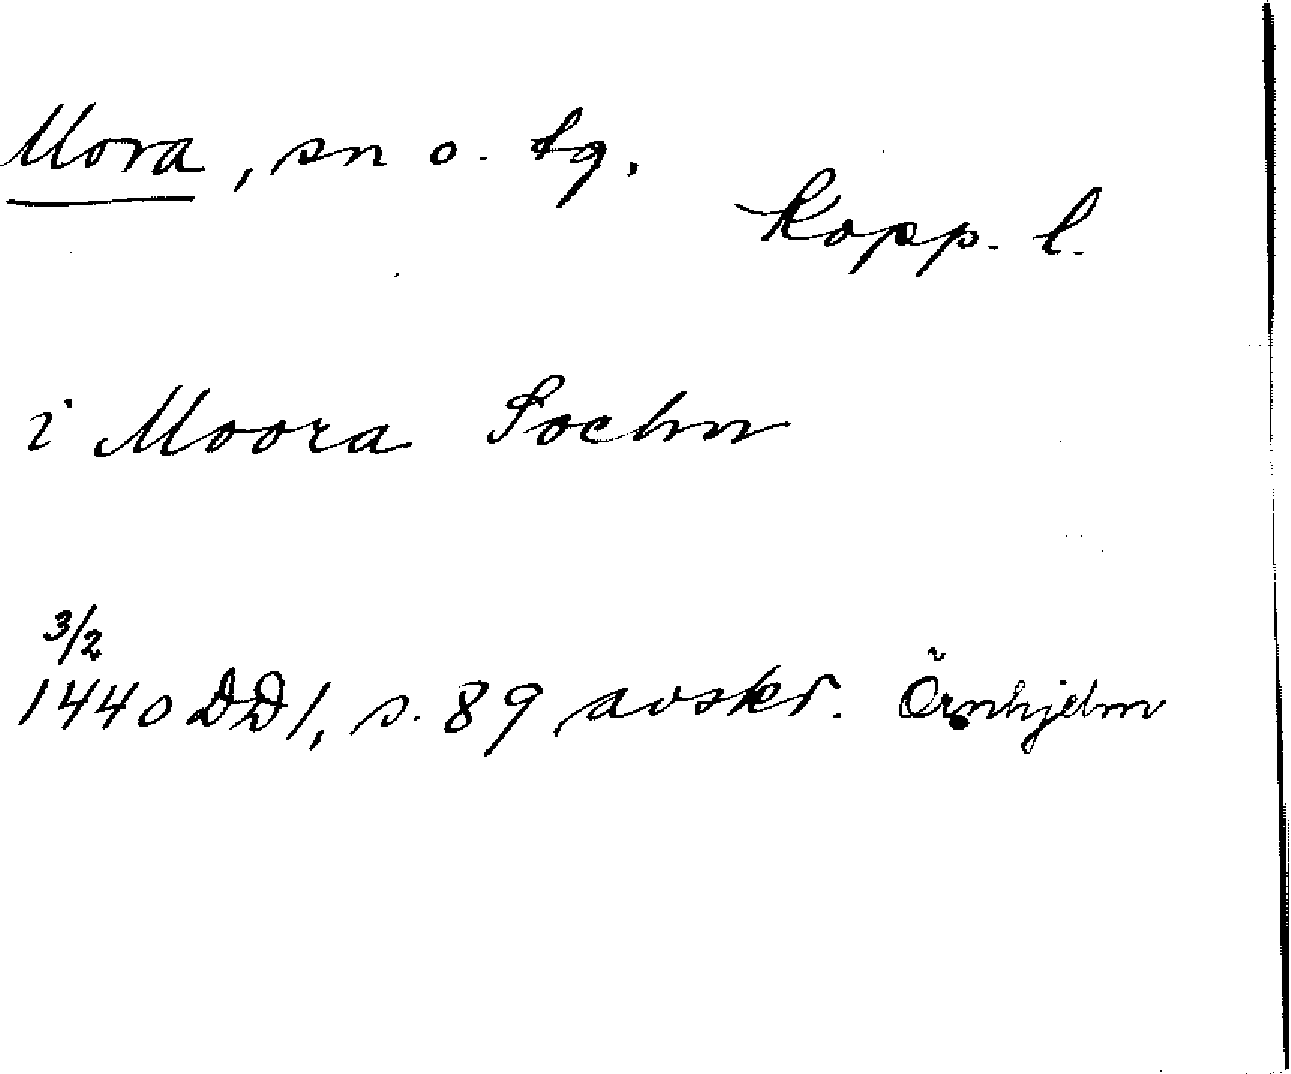 Mora, sn o. tg.
Kopp. l.
i Moora Sochn
3/2
1440 DD1, s. 89, avskr. Örnhjelm